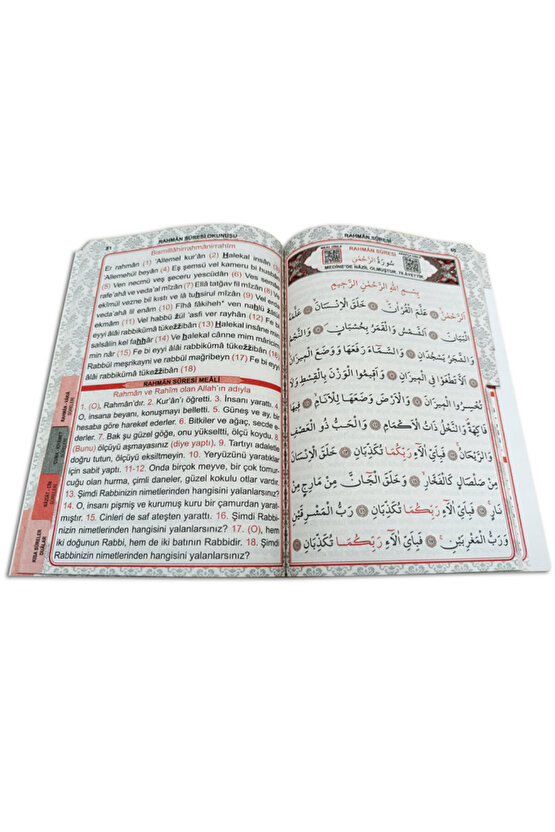 81
RAHMÂN SÛRESİ OKUNUŞU
Bismillâhirrahmânirrahîm
Er rahmân (1) 'Allemel kur'ân (2) Halekal insân (3)
'Allemehül beyân (4) Eş şemsü vel kameru bi husbân
(5) Ven necmü veş şeceru yescüdân (6) Ves semâe
rafe'ahâ ve veda'al mîzân (7) Ellâ tatğav fil mîzân (8) Ve
ekîmül vezne bil kıstı ve lâ tuhsirul mîzân (9) Vel erda
veda'ahâ lil enâm (10) Fîhâ fâkiheh" ven nahlü zâtül
ekmâm (11) Vel habbü zül 'asfi ver rayhân (12) Fe bi
eyyi âlâi rabbikümâ tükezzibân (13) Halekal insâne min
salsâlin kel fahhâr (14) Ve halekal cânne mim mâricim
min nâr (15) Fe bi eyyi âlâi rabbikümâ tükezzibân (16)
Rabbül meşrikayni ve rabbül mağribeyn (17) Fe bi eyyi
âlâi rabbikümâ tükezzibân (18)
RAHMÂN SÛRESİ MEÂLİ
Rahmân ve Rahîm olan Allah'ın adıyla
1. (O), Rahmân'dır. 2. Kur'ân'ı öğretti. 3. İnsanı yarattı. 4.
O, insana beyanı, konuşmayı belletti. 5. Güneş ve ay, bir
hesaba göre hareket ederler. 6. Bitkiler ve ağaç, secde e-
derler. 7. Bak şu güzel göğe, onu yükseltti, ölçü koydu. 8.
(Bunu) ölçüyü aşmayasınız (diye yaptı). 9. Tartıyı adaletle
doğru tutun, ölçüyü eksiltmeyin. 10. Yeryüzünü yaratıklar
için sabit yaptı. 11-12. Onda birçok meyve, bir çok tomur-
cuğu olan hurma, çimli daneler, güzel kokulu otlar vardır.
13. Şimdi Rabbinizin nimetlerinden hangisini yalanlarsınız?
14. O, insanı pişmiş ve kurumuş kuru bir çamurdan yarat-
mıştır. 15. Cinleri de saf ateşten yarattı. 16. Şimdi Rabbi-
nizin nimetlerinden hangisini yalanlarsınız? 17. (O), hem
iki doğunun Rabbi, hem de iki batının Rabbidir. 18. Şimdi
Rabbinizin nimetlerinden hangisini yalanlarsınız?
RAHMÂN SÛRESİ
RAHMÂN SÛRESİ
سُورَةُ الرَّحْمٰنِ
MEDİNE'DE NÂZİL OLMUŞTUR. 78 ÂYETTİR
بِسْمِ اللّٰهِ الرَّحْمٰنِ الرَّحِيمِ
اَلرَّحْمٰنُۙ عَلَّمَ الْقُرْاٰنَۜ خَلَقَ الْاِنْسَانَۙ عَلَّمَهُ
الْبَيَانَ اَلشَّمْسُ وَالْقَمَرُ بِحُسْبَانٍۙ وَالنَّجْمُ
وَالشَّجَرُ يَسْجُدَانِ وَالسَّمَاءَ رَفَعَهَا وَوَضَعَ الْمِيزَانَۙ
اَلَّا تَطْغَوْا فِي الْمِيزَانِ وَاَقِيمُوا الْوَزْنَ بِالْقِسْطِ وَلَا
تُخْسِرُوا الْمِيزَانَ وَالْاَرْضَ وَضَعَهَا لِلْاَنَامِۙ فِيهَا
فَاكِهَةٌ وَالنَّخْلُ ذَاتُ الْاَكْمَامِۚ وَالْحَبُّ ذُو الْعَصْفِ
وَالرَّيْحَانُۚ فَبِاَيِّ اٰلَاءِ رَبِّكُمَا تُكَذِّبَانِ خَلَقَ الْاِنْسَانَ
مِنْ صَلْصَالٍ كَالْفَخَّارِۙ وَخَلَقَ الْجَانَّ مِنْ مَارِجٍ مِنْ
نَارٍۚ فَبِاَيِّ اٰلَاءِ رَبِّكُمَا تُكَذِّبَانِ رَبُّ الْمَشْرِقَيْنِ
وَرَبُّ الْمَغْرِبَيْنِۚ فَبِاَيِّ اٰلَاءِ رَبِّكُمَا تُكَذِّبَانِ